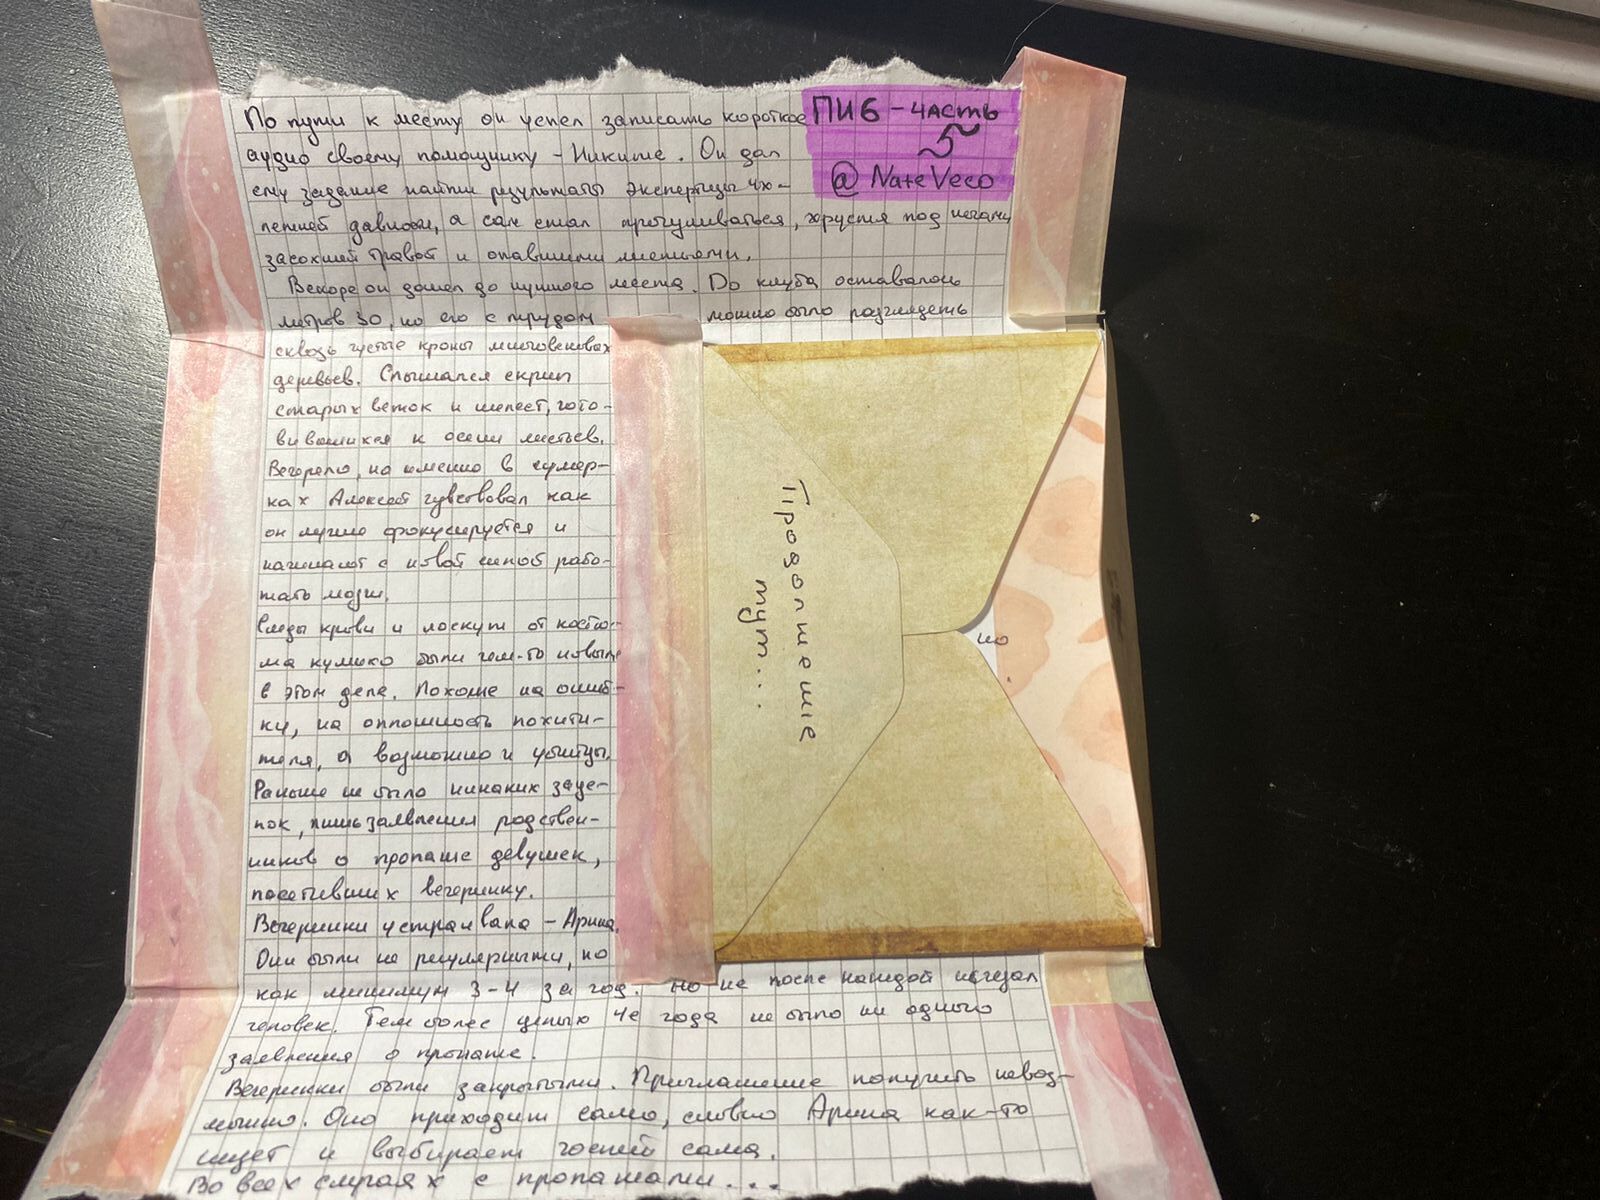 По пути к месту он успел записать короткое
ПИ6 - часть
5
@ NateVeco
аудио своему помощнику - Никите. Он дал
ему задание найти результаты экспертизы 4х-
летней давности, а сам стал прогуливаться, хрустя под ногами
засохшей травой и опавшими листьями.
Вскоре он дошел до нужного места. До клуба оставалось
метров 30, но его с трудом можно было разглядеть
сквозь густые кроны многовековых
деревьев. Слышался скрип
старых веток и шелест, гото-
вившихся к осени листьев.
Вечерело, но именно в сумер-
ках Алексей чувствовал как
он лучше фокусируется и
начинают с новой силой рабо-
тать мозги.
Следы крови и лоскут от костю-
ма кумихо были чем-то новым
в этом деле. Похоже на ошиб-
ку, на оплошность похити-
теля, а возможно и убийцы.
Раньше не было никаких заце-
пок, лишь заявления родствен-
ников о пропаже девушек,
посетивших вечеринку.
Вечеринки устраивала - Арина.
Они были не регулярными, но
как минимум 3-4 за год. Но не после каждой исчезал
человек. Тем более целых 4е года не было ни одного
заявления о пропаже.
Вечеринки были закрытыми. Приглашение получить невоз-
можно. Оно приходит само, словно Арина как-то
ищет и выбирает гостей сама.
Во всех случаях с пропажами...
Продолжение
тут...
но